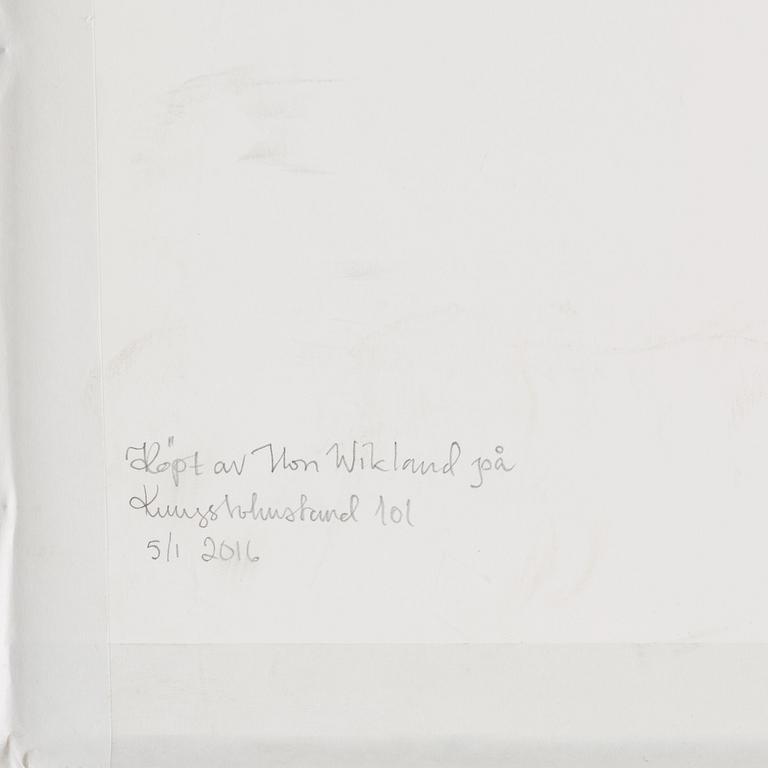 Köpt av Ilon Wikland på
Kungsholmsstrand 101
5/1 2016